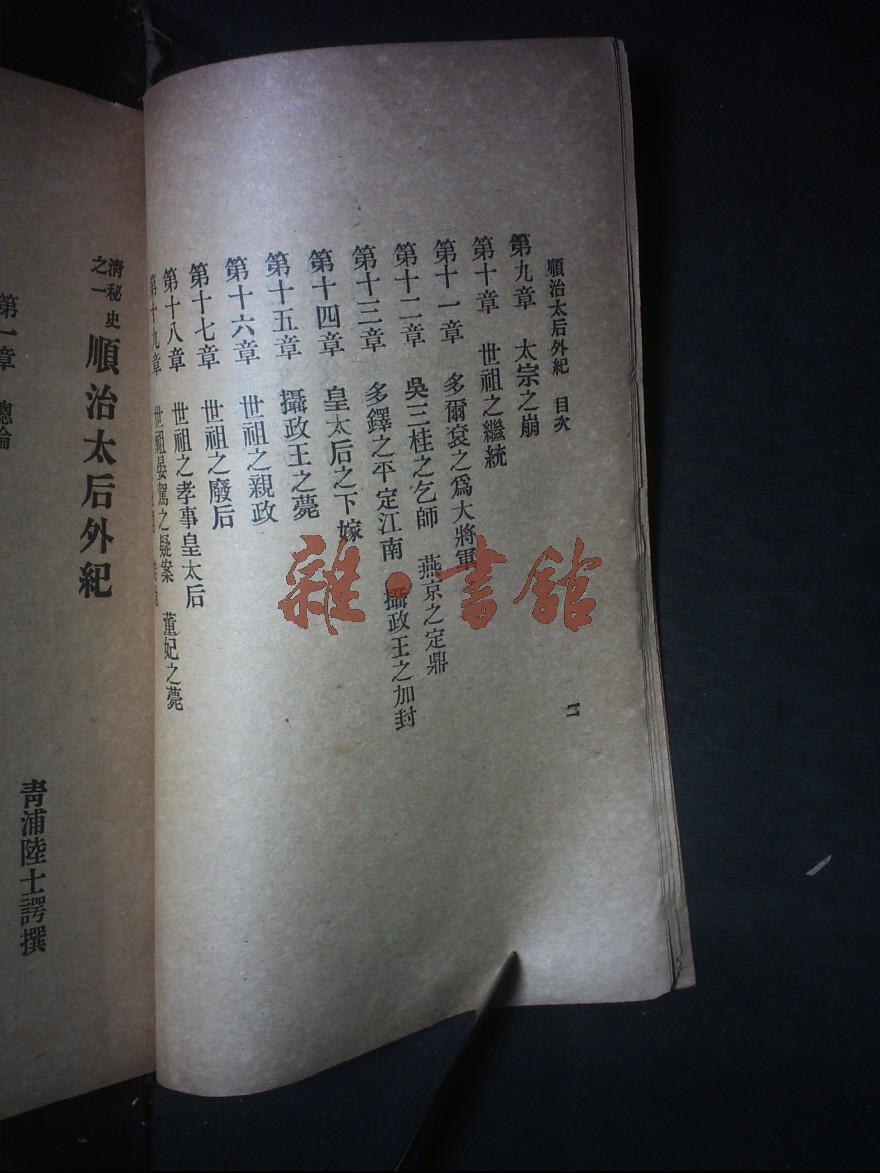 順治太后外紀　目次
第九章　太宗之崩
第十章　世祖之繼統
第十一章　多爾袞之爲大將軍
第十二章　吳三桂之乞師　燕京之定鼎
第十三章　多鐸之平定江南　攝政王之加封
第十四章　皇太后之下嫁
第十五章　攝政王之薨
第十六章　世祖之親政
第十七章　世祖之廢后
第十八章　世祖之孝事皇太后
第十九章　世祖晏駕之疑案　董妃之薨
清秘史之一　順治太后外紀
青浦陸士諤撰
第一章　總論
雜·書館